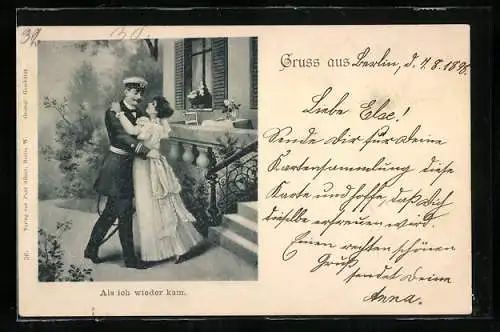 39.
30.
Gruss aus Berlin, d. 7.8.1898.
Liebe Else!
Sende Dir für Deine
Kartensammlung diese
Karte und hoffe, daß Dich
dieselbe erfreuen wird.
Einen rechten schönen
Gruß
sendet Deine
Anna.
Als ich wieder kam.
36. Verlag von Paul Berlin W.